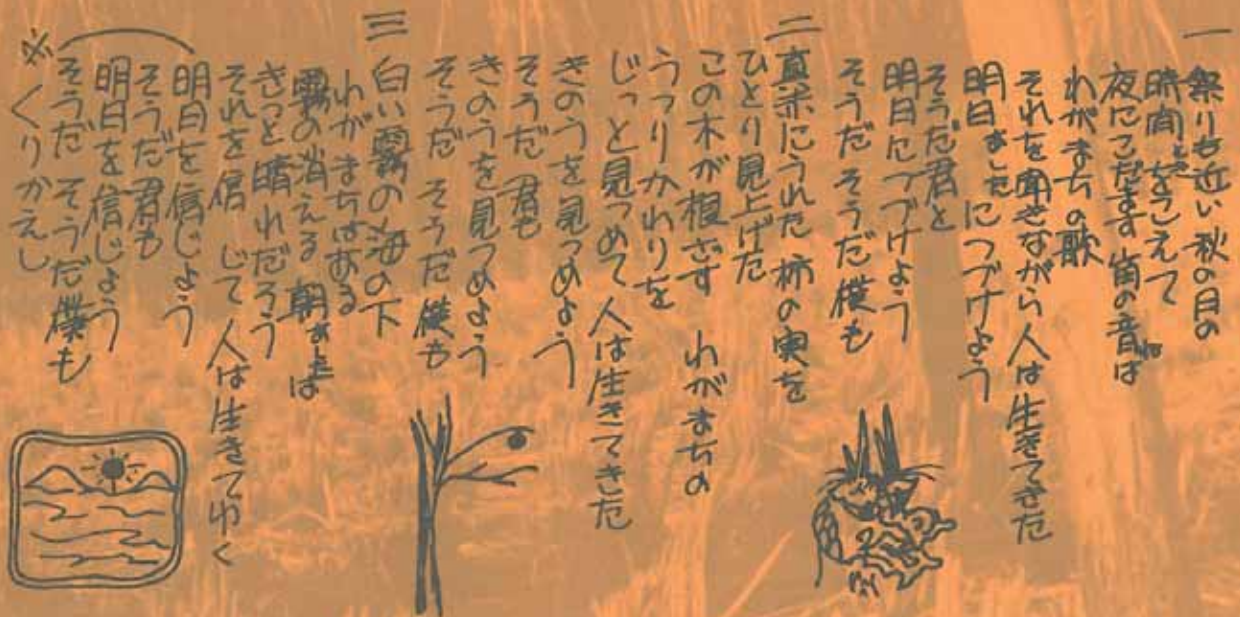 一
祭りも近い秋の日の
時間をこえて
夜にこだます笛の音は
わがまちの歌
それを聞きながら人は生きてきた
明日につづけよう
そうだ君と
明日につづけよう
そうだ そうだ 僕も
二
真赤にうれた 柿の実を
ひとり見上げた
この木が根ざす わがまちの
うつりかわりを
じっと見つめて 人は生きてきた
きのうを見つめよう
そうだ 君も
きのうを見つめよう
そうだ そうだ 僕も
三
白い霧の海の下
わがまちはある
霧の消える 朝は
きっと晴れだろう
それを信じて 人は生きてゆく
明日を信じよう
そうだ君も
明日を信じよう
そうだ そうだ 僕も
※くりかえし